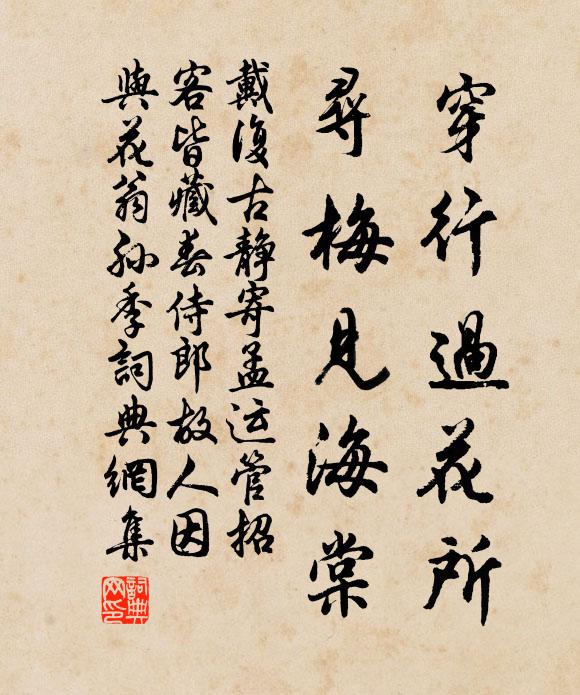 穿行過花所
尋梅見海棠
戴復古靜寄孟運管招
客皆藏春侍郎故人因
與花翁孫季詞典網集
詞典網印